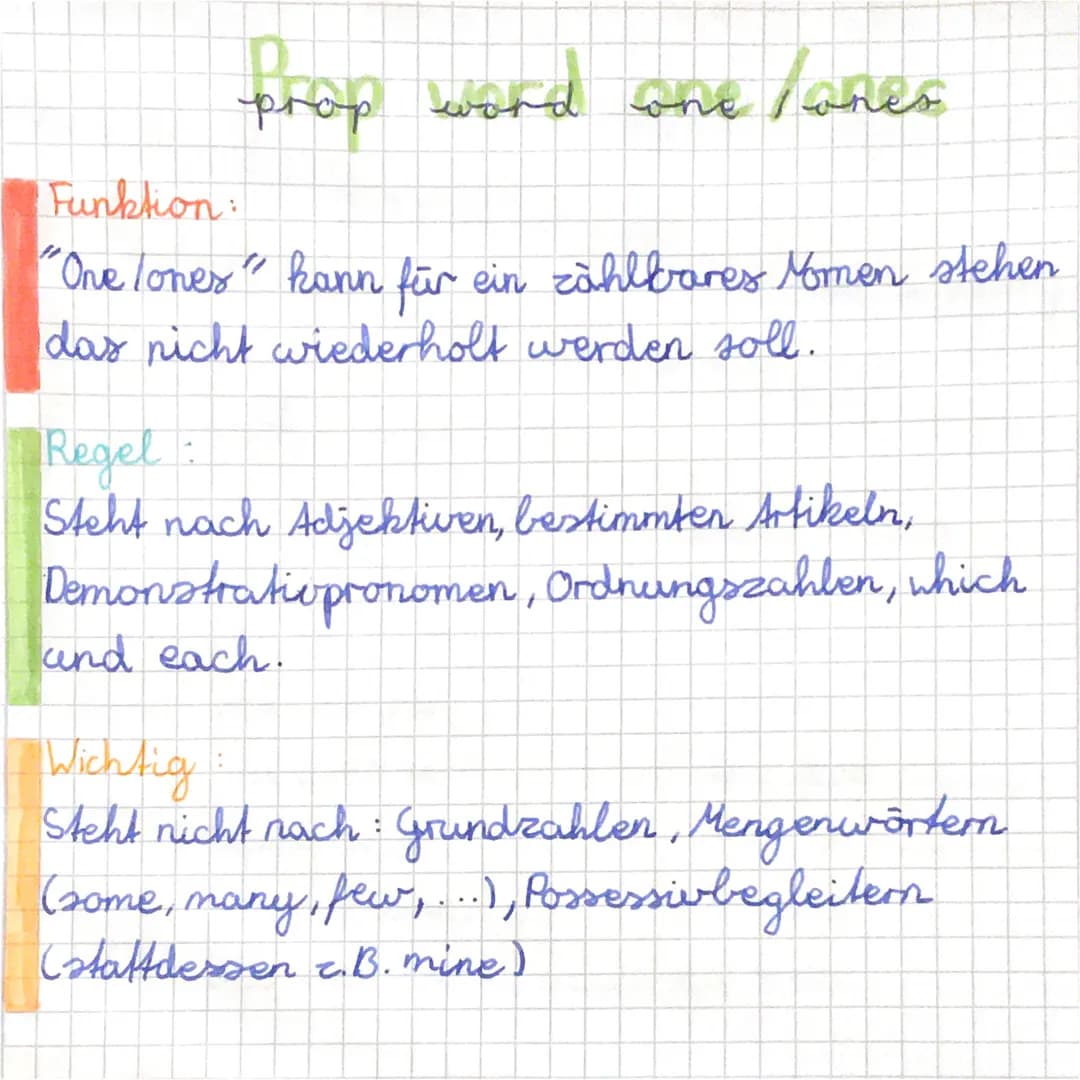 prop word one / ones
Funktion:
"One/ones" kann für ein zählbares Nomen stehen
das nicht wiederholt werden soll.
Regel :
Steht nach Adjektiven, bestimmten Artikeln,
Demonstrativpronomen, Ordnungszahlen, which
und each.
Wichtig :
Steht nicht nach : Grundzahlen, Mengenwörtern
(some, many, few, ...), Possessivbegleitern
(stattdessen z.B. mine)